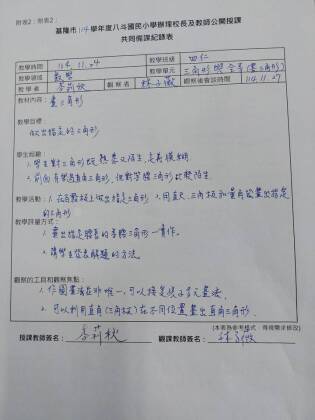 附表2：附表2：
基隆市114學年度八斗國民小學辦理校長及教師公開授課
共同備課紀錄表
教學時間 114.11.24 教學班級 四仁
教學領域 數學 教學單元 三角形與全等(畫三角形)
教學者 李莉秋 觀察者 觀察後會談時間 114.11.27
教材內容：畫三角形
教學目標：
做出指定的三角形
學生經驗：
1.學生對三角形既熟悉又陌生，是為模糊
2.前面有學過直角三角形，但對等腰三角形比較陌生。
教學活動：1.在百點板上做出指定三角形 2.用直尺、三角板和量角器畫出指定
的三角形
教學評量方式：
1.畫出指定腰長的等腰三角形－實作。
2.請學生發表解題的方法。
觀察的工具和觀察焦點：
1.作圖畫法並非唯一，可以接受孩子多元畫法，
2.可以利用直角(三角板)在不同位置畫出直角三角形。
(本表為參考格式，得視需求修改)
授課教師簽名：李莉秋 觀課教師簽名：